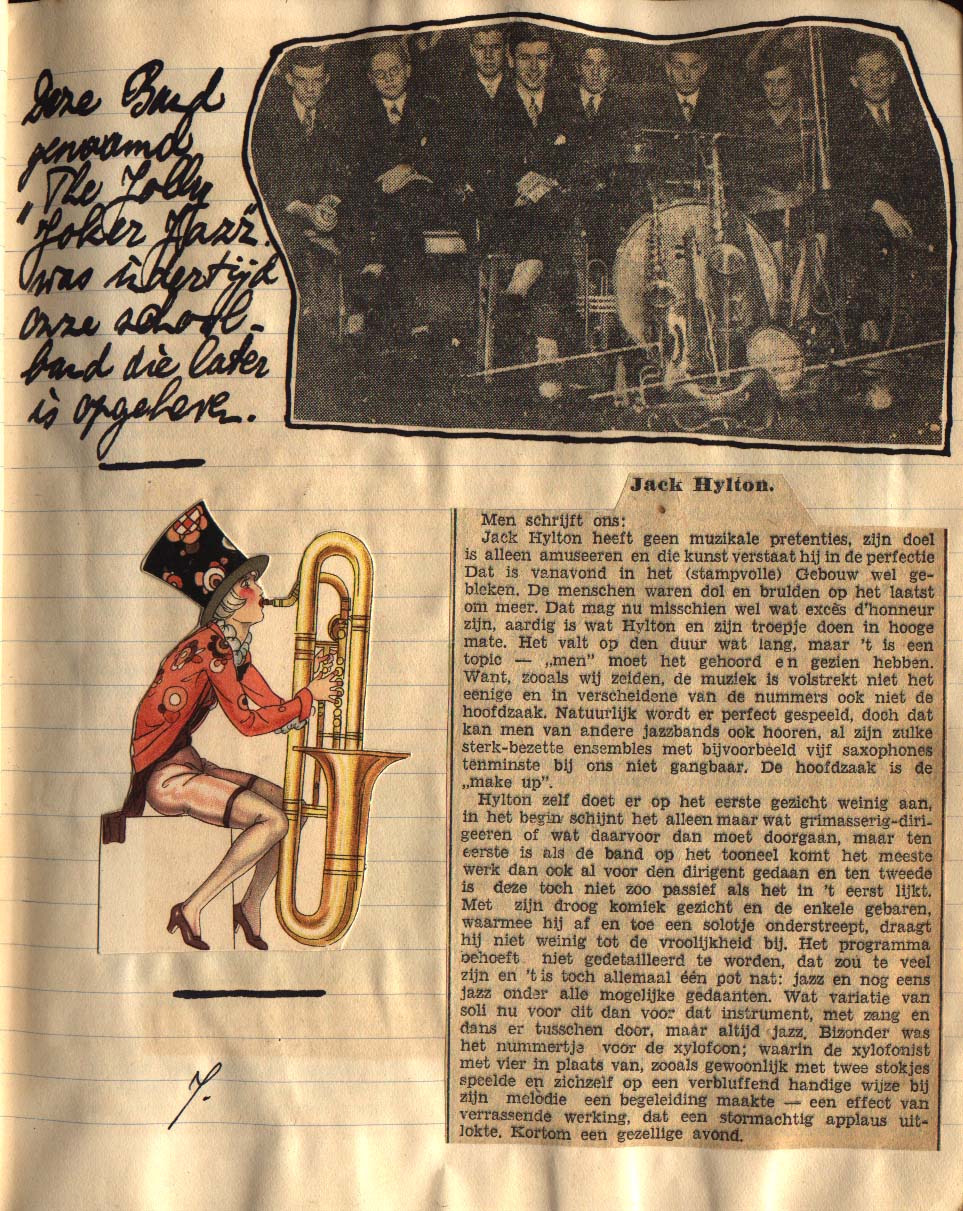 Deze Band
genaamd
"The Jolly
Joker Jazz".
was indertijd
onze school-
band die later
is opgeheven.
Jack Hylton.
Men schrijft ons:
Jack Hylton heeft geen muzikale pretenties, zijn doel
is alleen amuseeren en die kunst verstaat hij in de perfectie
Dat is vanavond in het (stampvolle) Gebouw wel ge-
bleken. De menschen waren dol en brulden op het laatst
om meer. Dat mag nu misschien wel wat excès d'honneur
zijn, aardig is wat Hylton en zijn troepje doen in hooge
mate. Het valt op den duur wat lang, maar 't is een
topic — „men" moet het gehoord en gezien hebben.
Want, zooals wij zeiden, de muziek is volstrekt niet het
eenige en in verscheidene van de nummers ook niet de
hoofdzaak. Natuurlijk wordt er perfect gespeeld, doch dat
kan men van andere jazzbands ook hooren, al zijn zulke
sterk-bezette ensembles met bijvoorbeeld vijf saxophones
tenminste bij ons niet gangbaar. De hoofdzaak is de
„make up".
Hylton zelf doet er op het eerste gezicht weinig aan,
in het begin schijnt het alleen maar wat grimasserig-diri-
geeren of wat daarvoor dan moet doorgaan, maar ten
eerste is als de band op het tooneel komt het meeste
werk dan ook al voor den dirigent gedaan en ten tweede
is deze toch niet zoo passief als het in 't eerst lijkt.
Met zijn droog komiek gezicht en de enkele gebaren,
waarmee hij af en toe een solotje onderstreept, draagt
hij niet weinig tot de vroolijkheid bij. Het programma
behoeft niet gedetailleerd te worden, dat zou te veel
zijn en 't is toch allemaal één pot nat: jazz en nog eens
jazz onder alle mogelijke gedaanten. Wat variatie van
soli nu voor dit dan voor dat instrument, met zang en
dans er tusschen door, maar altijd jazz. Bizonder was
het nummertje voor de xylofoon; waarin de xylofonist
met vier in plaats van, zooals gewoonlijk met twee stokjes
speelde en zichzelf op een verbluffend handige wijze bij
zijn melodie een begeleiding maakte — een effect van
verrassende werking, dat een stormachtig applaus uit-
lokte. Kortom een gezellige avond.